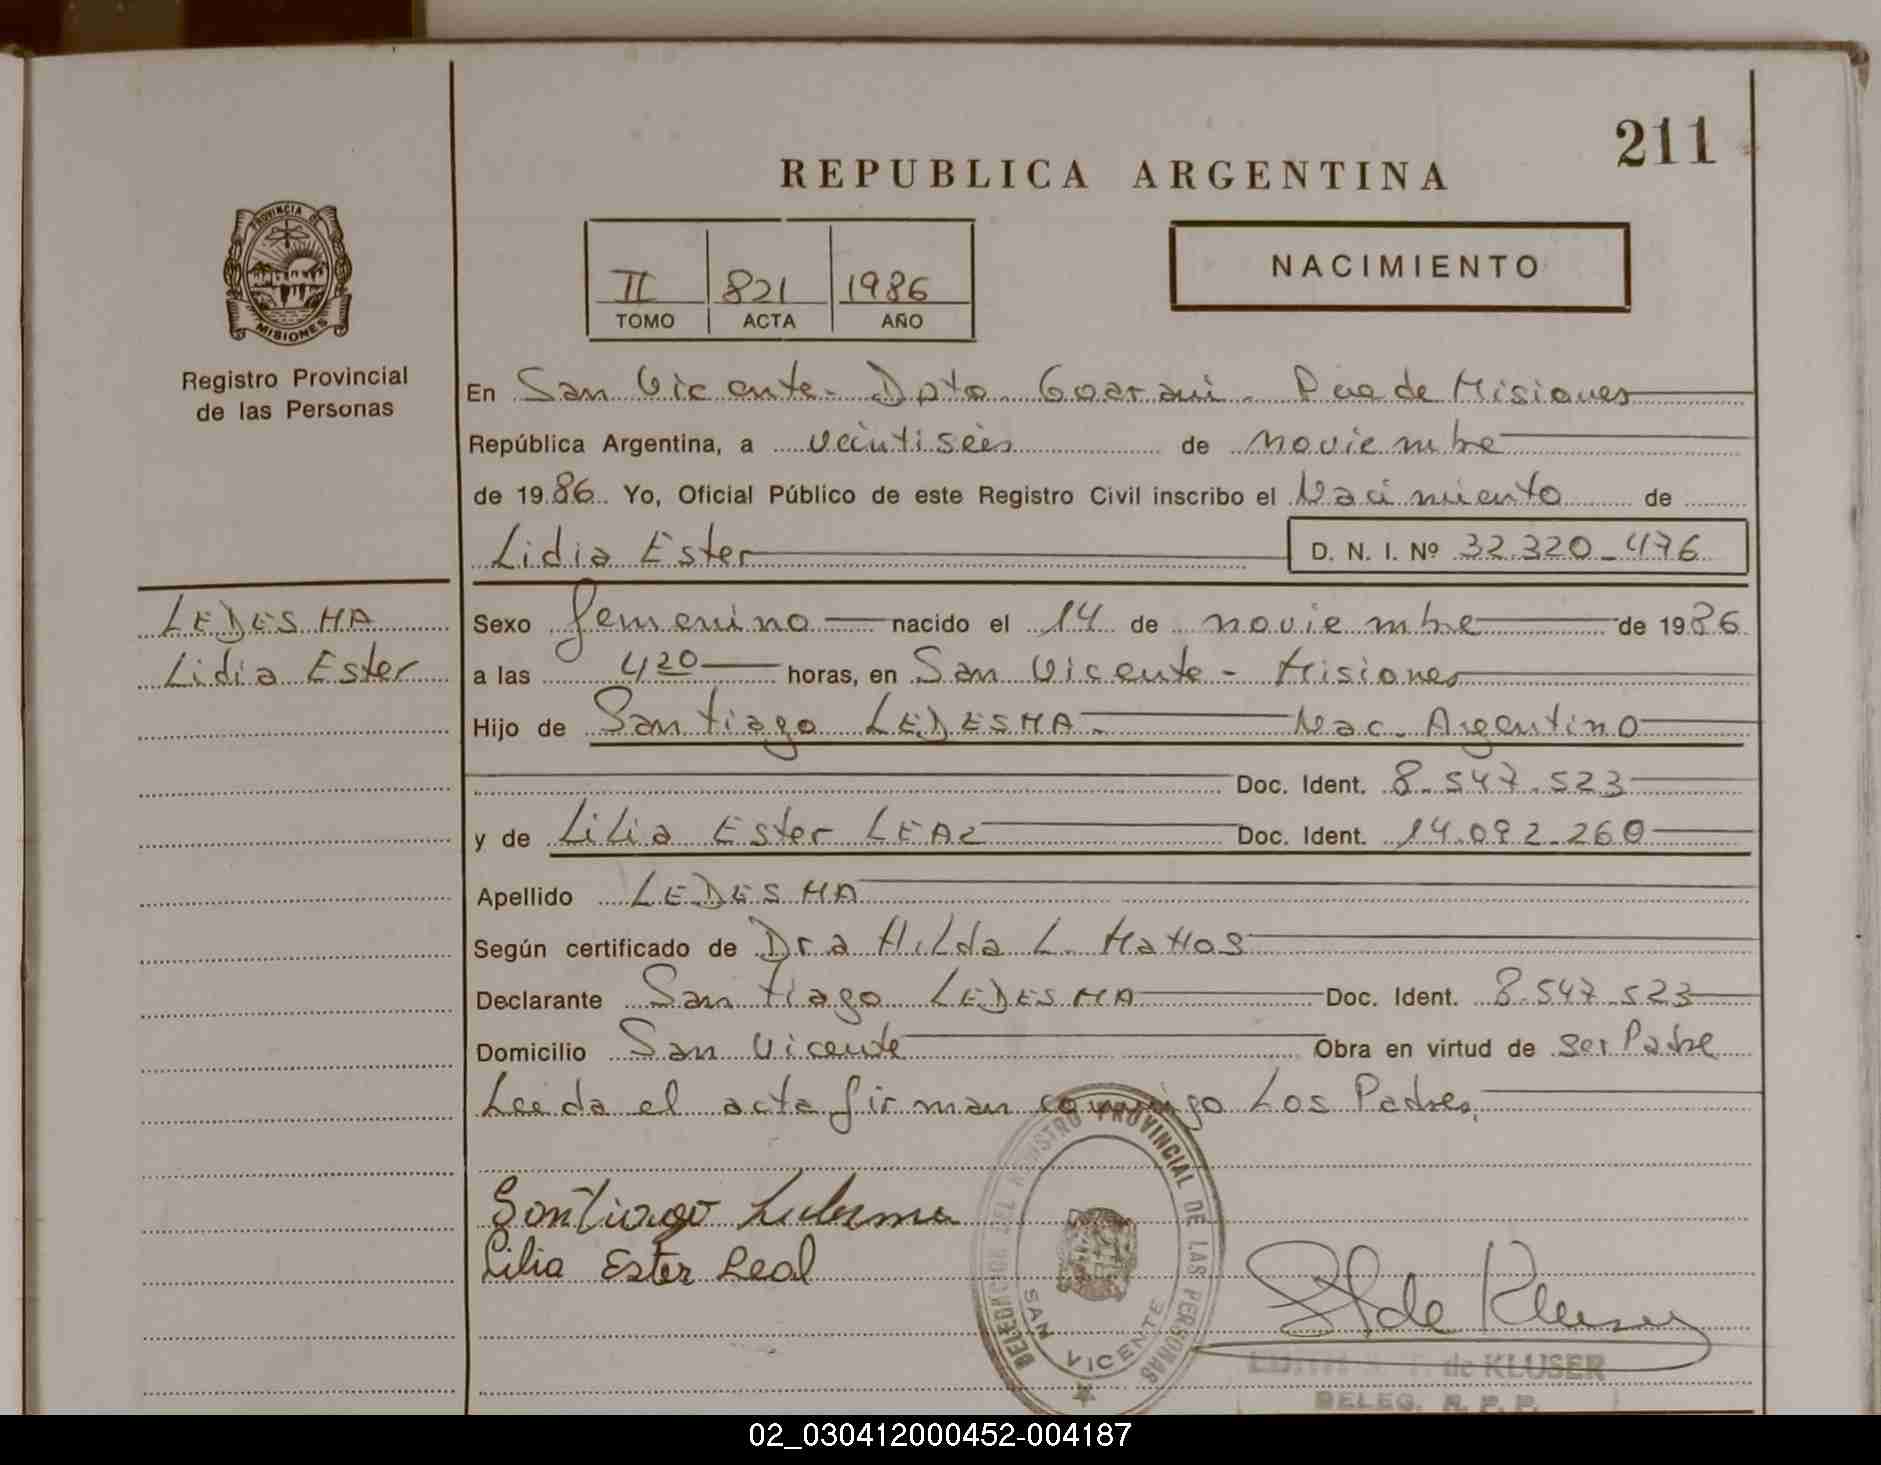 211
REPUBLICA ARGENTINA
PROVINCIA DE
MISIONES
Registro Provincial
de las Personas
II 821 1986
TOMO ACTA AÑO
NACIMIENTO
En San Vicente - Dpto. Guarani - Pcia de Misiones
República Argentina, a veintiseis de noviembre
de 1986 Yo, Oficial Público de este Registro Civil inscribo el Nacimiento de
Lidia Ester D. N. I. Nº 32.320-476
LEDESMA
Lidia Ester
Sexo femenino nacido el 14 de noviembre de 1986
a las 4 20 horas, en San Vicente - Misiones
Hijo de Santiago LEDESMA - Nac. Argentino
Doc. Ident. 8.547.523
y de Lilia Ester LEAL Doc. Ident. 14.092.260
Apellido LEDESMA
Según certificado de Dra Hilda L. Mattos
Declarante Santiago LEDESMA Doc. Ident. 8.547.523
Domicilio San Vicente Obra en virtud de ser Padre
Leida el acta firman conmigo Los Padres.
Santiago Ledesma
Lilia Ester Leal
DELEGACION DEL REGISTRO PROVINCIAL DE LAS PERSONAS
SAN VICENTE
de Kluser
de KLUSER
DELEG. R. P. P.
02_030412000452-004187